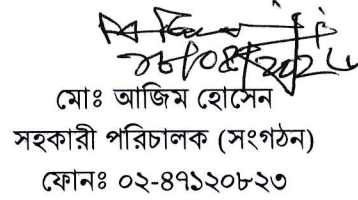 মোঃ আজিম হোসেন
সহকারী পরিচালক (সংগঠন)
ফোনঃ ০২-৪৭১২০৮২৩